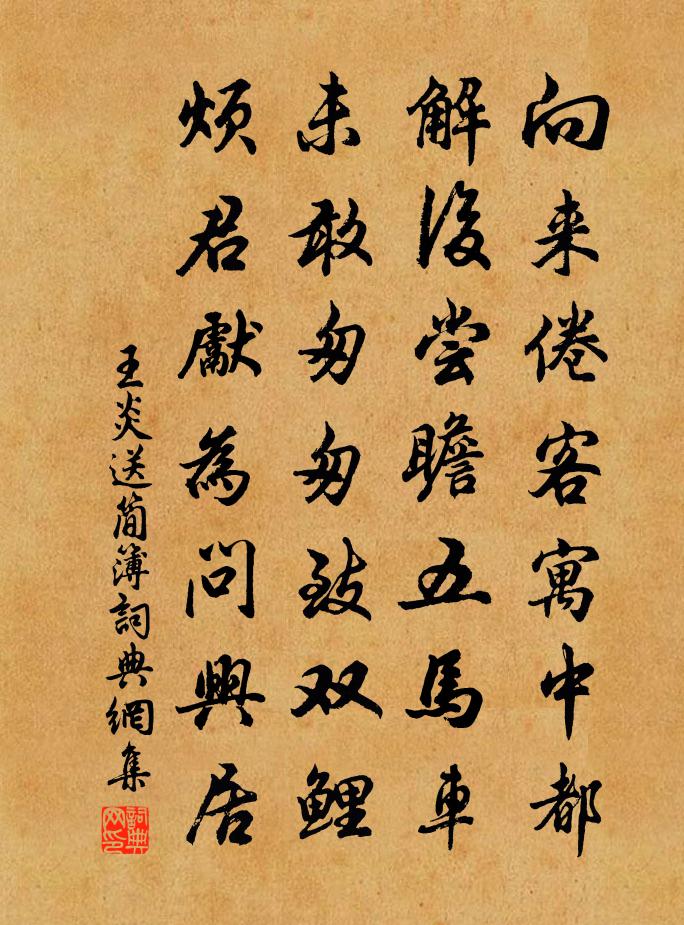 向来倦客寓中都
解后尝瞻五馬車
未敢匆匆致双鲤
烦君獻為问興居
王炎送简簿詞典網集
詞典网印